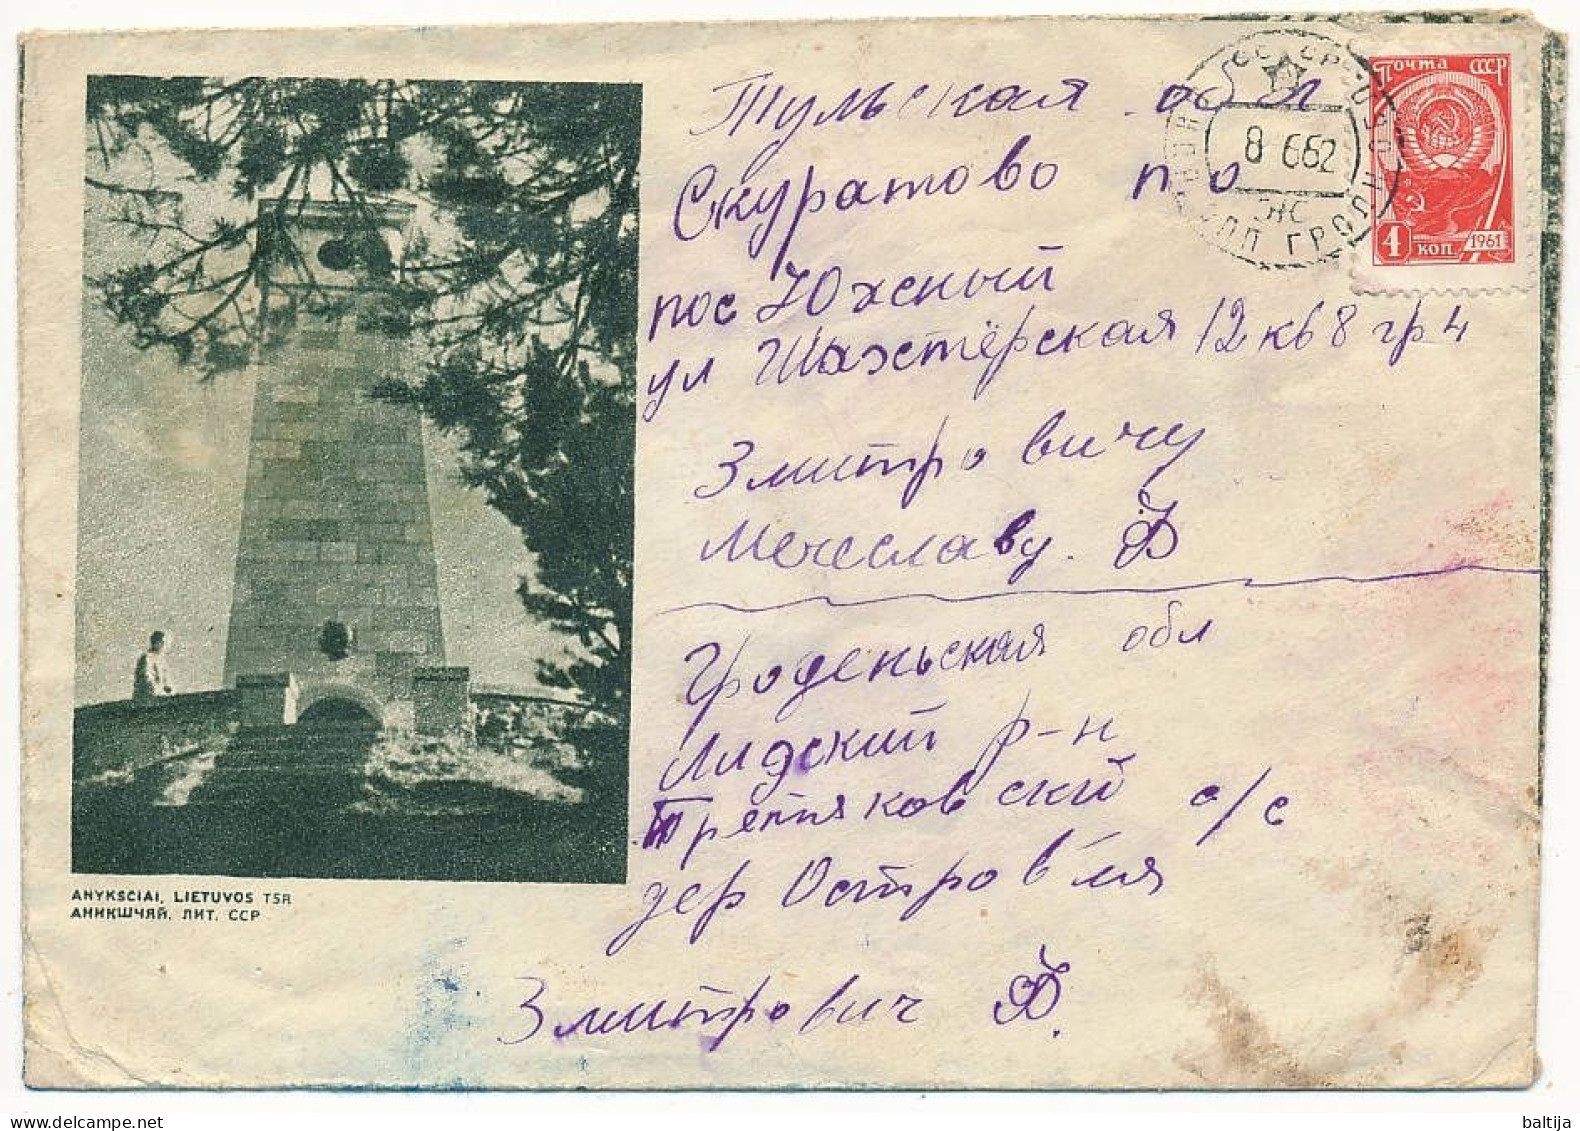 Почта СССР
4 коп. 1961
8 6 62
Тульская обл
Скуратово п о
пос Южный
ул Шахтёрская 12 кв 8 гр 4
Змитровичу
Мечеславу. Ф
Гроденьская обл
Лидский р-н
Третьяковский с/с
дер Островля
Змитрович Ф.
ANYKSCIAI, LIETUVOS TSR
АНИКШЧЯЙ. ЛИТ. ССР
baltija